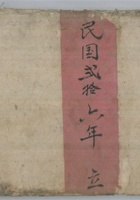 民国弍拾六年 立